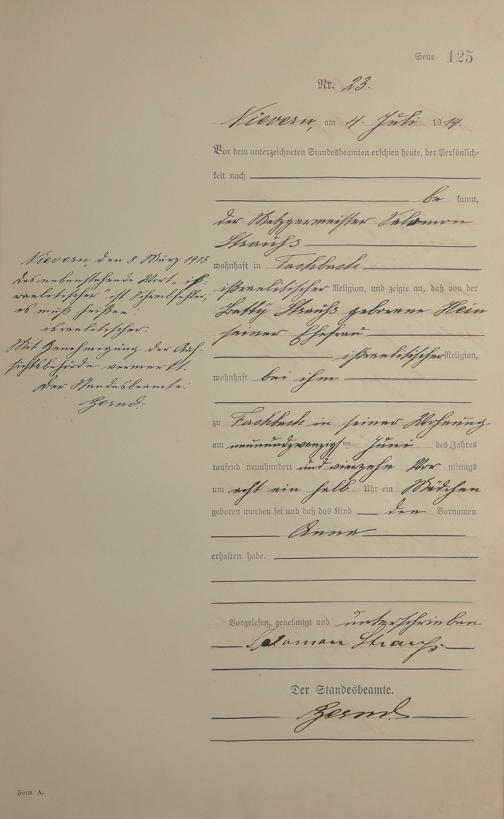 Seite 125
Nr. 23.
Nievern, am 4. Juli 1914.
Vor dem unterzeichneten Standesbeamten erschien heute, der Persönlich-
keit nach
be kannt,
der Metzgermeister Salomon
Strauhs
wohnhaft in Fachbach
ißraelitischer Religion, und zeigte an, daß von der
Betty Strauhs geborene Hein
seiner Ehefrau
ißraelitischer Religion,
wohnhaft bei ihm
zu Fachbach in seiner Wohnung
am neunundzwanzigsten Juni des Jahres
tausend neunhundert und vierzehn Vor mittags
um acht ein halb Uhr ein Mädchen
geboren worden sei und daß das Kind den Vornamen
Anna
erhalten habe.
Vorgelesen, genehmigt und unterschrieben
Salomon Strauhs
Der Standesbeamte.
Nievern den 8 März 1915
Das nebenstehende Wort „iß-
raelitischer“ ist Schreibfehler,
es muß heißen:
israelitischer.
Mit Genehmigung der Auf-
sichtsbehörde vermerkt.
Der Standesbeamte:
Form. A.